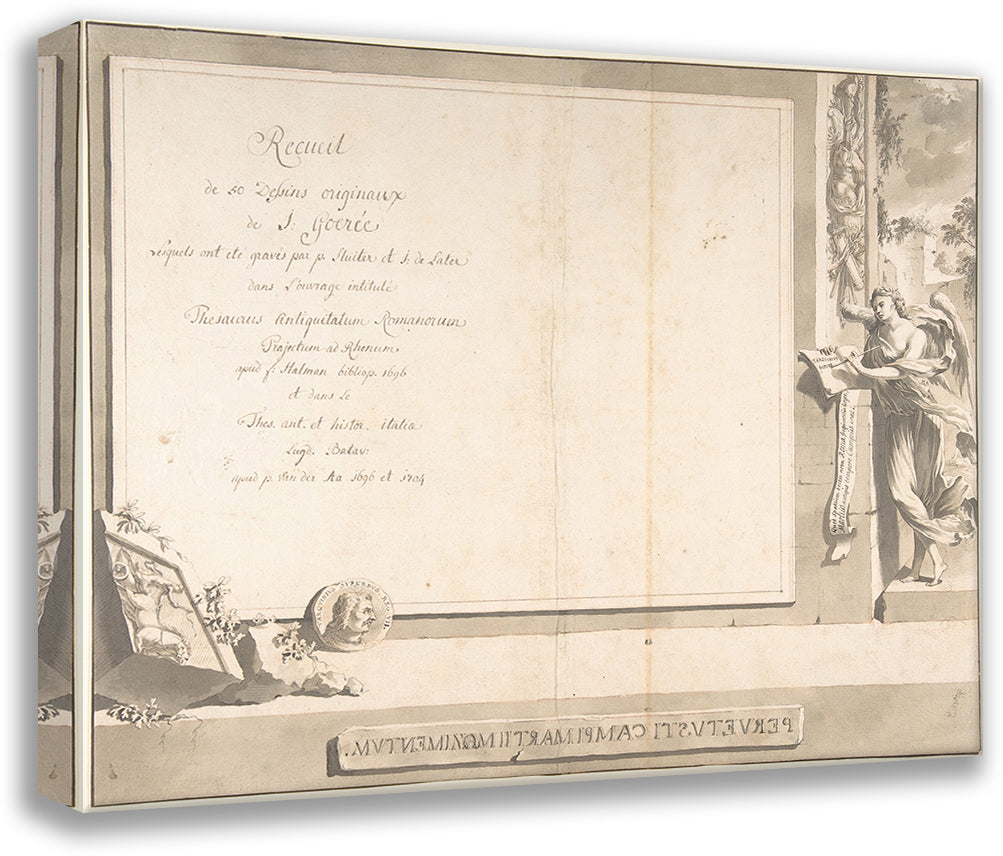 Recueil
de 50 Dessins originaux
de J. Goerée
Lesquels ont été gravés par p. Sluiter et J: de Later
dans L'ouvrage intitulé
Thesaurus Antiquitatum Romanorum
Trajectum ad Rhenum
apud f: Halman bibliop. 1696
et dans Le
Thes. ant. et histor. italiæ
Lugd. Batav:
apud p. Van der Aa 1696 et 1704
PERVETUSTI CAMPI MARTII MONIMENTUM.